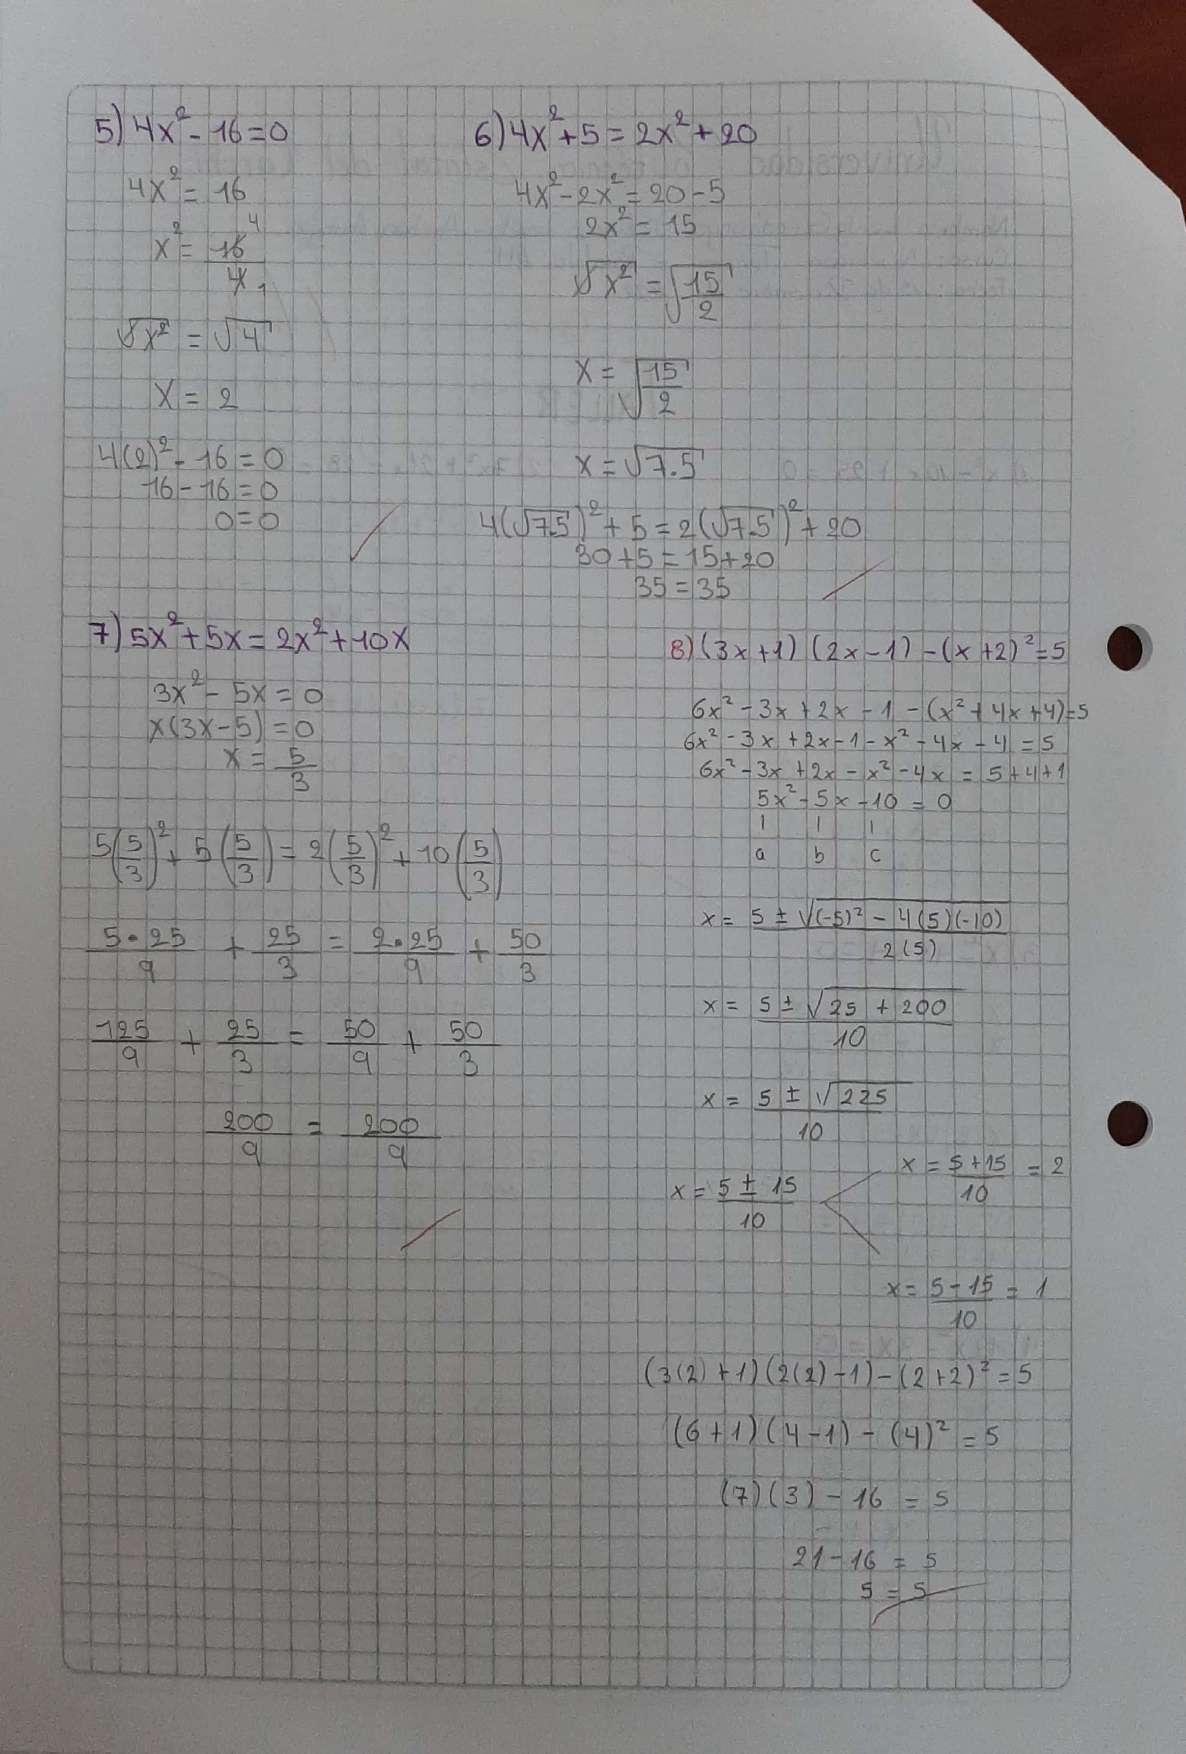 5) 4x² - 16 = 0
4x² = 16
x² = 16/4 4 1
√x² = √4
x = 2
4(2)² - 16 = 0
16 - 16 = 0
0 = 0
6) 4x² + 5 = 2x² + 20
4x² - 2x² = 20 - 5
2x² = 15
√x² = √15/2
x = √15/2
x = √7.5
4(√7.5)² + 5 = 2(√7.5)² + 20
30 + 5 = 15 + 20
35 = 35
7) 5x² + 5x = 2x² + 10x
3x² - 5x = 0
x(3x - 5) = 0
x = 5/3
5(5/3)² + 5(5/3) = 2(5/3)² + 10(5/3)
5·25/9 + 25/3 = 2·25/9 + 50/3
125/9 + 25/3 = 50/9 + 50/3
200/9 = 200/9
8) (3x + 1) (2x - 1) - (x + 2)² = 5
6x² - 3x + 2x - 1 - (x² + 4x + 4) = 5
6x² - 3x + 2x - 1 - x² - 4x - 4 = 5
6x² - 3x + 2x - x² - 4x = 5 + 4 + 1
5x² - 5x - 10 = 0
a b c
x = 5 ± √(-5)² - 4(5)(-10) / 2(5)
x = 5 ± √25 + 200 / 10
x = 5 ± √225 / 10
x = 5 ± 15 / 10
x = 5 + 15 / 10 = 2
x = 5 - 15 / 10 = 1
(3(2) + 1) (2(2) - 1) - (2 + 2)² = 5
(6 + 1) (4 - 1) - (4)² = 5
(7) (3) - 16 = 5
21 - 16 = 5
5 = 5